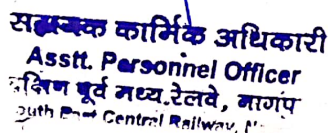 सहायक कार्मिक अधिकारी
Asstt. Personnel Officer
दक्षिण पूर्व मध्य रेलवे, नागप
South East Central Railway, N